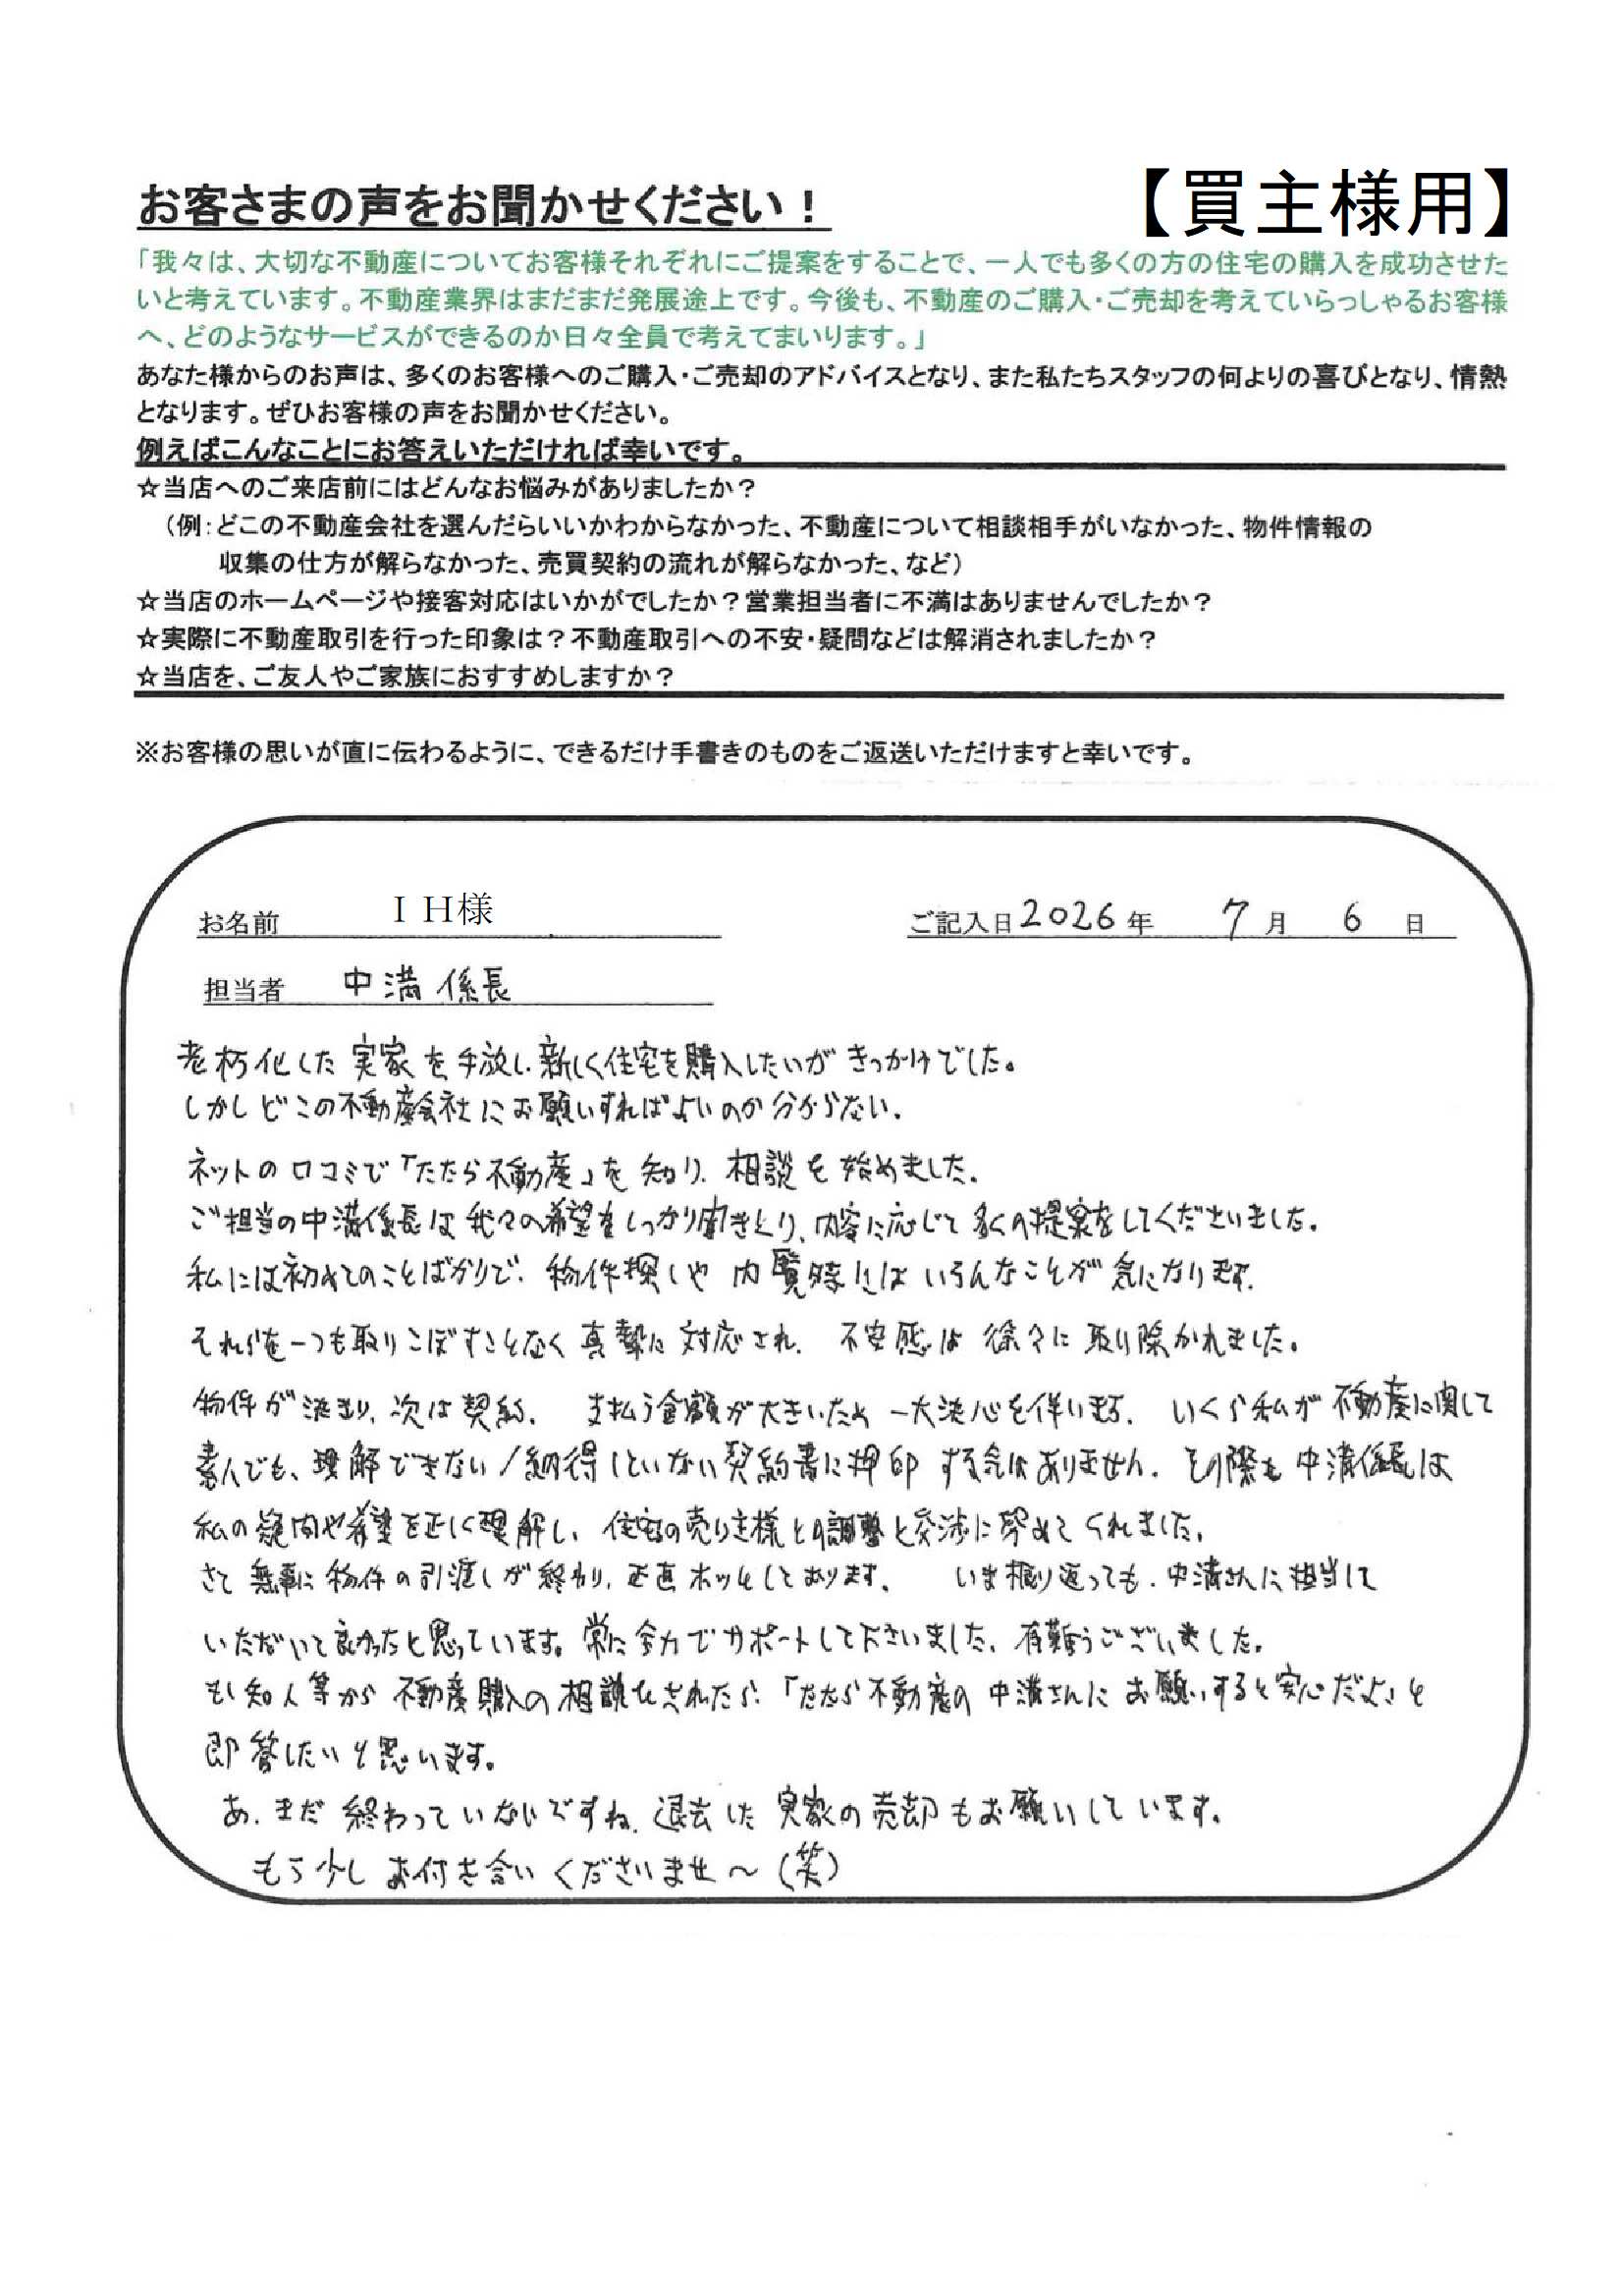 お客さまの声をお聞かせください！
【買主様用】
「我々は、大切な不動産についてお客様それぞれにご提案をすることで、一人でも多くの方の住宅の購入を成功させた
いと考えています。不動産業界はまだまだ発展途上です。今後も、不動産のご購入・ご売却を考えていらっしゃるお客様
へ、どのようなサービスができるのか日々全員で考えてまいります。」
あなた様からのお声は、多くのお客様へのご購入・ご売却のアドバイスとなり、また私たちスタッフの何よりの喜びとなり、情熱
となります。ぜひお客様の声をお聞かせください。
例えばこんなことにお答えいただければ幸いです。
☆当店へのご来店前にはどんなお悩みがありましたか？
（例：どこの不動産会社を選んだらいいかわからなかった、不動産について相談相手がいなかった、物件情報の
収集の仕方が解らなかった、売買契約の流れが解らなかった、など）
☆当店のホームページや接客対応はいかがでしたか？営業担当者に不満はありませんでしたか？
☆実際に不動産取引を行った印象は？不動産取引への不安・疑問などは解消されましたか？
☆当店を、ご友人やご家族におすすめしますか？
※お客様の思いが直に伝わるように、できるだけ手書きのものをご返送いただけますと幸いです。
お名前 ＩＨ様
ご記入日 2026年 7月 6日
担当者 中溝係長
老朽化した実家を手放し、新しく住宅を購入したいがきっかけでした。
しかしどこの不動産会社にお願いすればよいのか分からない。
ネットの口コミで「たたら不動産」を知り、相談を始めました。
ご担当の中溝係長は我々の希望をしっかり聞きとり、内容に応じて多くの提案をしてくださいました。
私には初めてのことばかりで、物件探しや内覧時にはいろんなことが気になります。
それらを一つも取りこぼすことなく真摯に対応され、不安感は徐々に取り除かれました。
物件が決まり、次は契約。支払う金額が大きいため一大決心を伴います。いくら私が不動産に関して
素人でも、理解できない／納得していない契約書に押印する気はありません。その際も中溝係長は
私の疑問や希望を正しく理解し、住宅の売り主様との調整と交渉に努めてくれました。
さて無事に物件の引渡しが終わり、正直ホッとしております。いま振り返っても、中溝さんに担当して
いただいて良かったと思っています。常に全力でサポートして下さいました、有難うございました。
もし知人等から不動産購入の相談をされたら、「たたら不動産の中溝さんにお願いすると安心だよ」と
即答したいと思います。
あ、まだ終わっていないですね、退去した実家の売却もお願いしています。
もう少しお付き合いくださいませ～（笑）